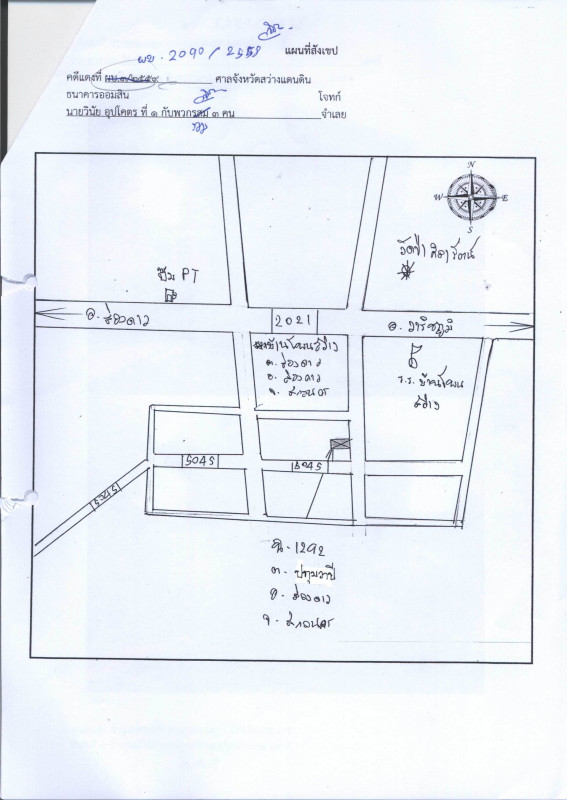 แผนที่สังเขป
ผบ. 2090 / 2559
คดีแดงที่ ผบ.๓/๒๕๕๙ ศาลจังหวัดสว่างแดนดิน
ธนาคารออมสิน โจทก์
นายวินัย อุปโคตร ที่ ๑ กับพวกรวม ๓ คน จำเลย
รวม
N
W E
S
วัดป่า
ปั๊ม PT
อ. ส่องดาว
2021
อ. วาริชภูมิ
บ้านโพนสว่าง
ต. ส่องดาว
อ. ส่องดาว
จ. สกลนคร
ร.ร. บ้านโพน
สว่าง
5045
5045
5045
น. 1292
ต. ปทุมวาปี
อ. ส่องดาว
จ. สกลนคร